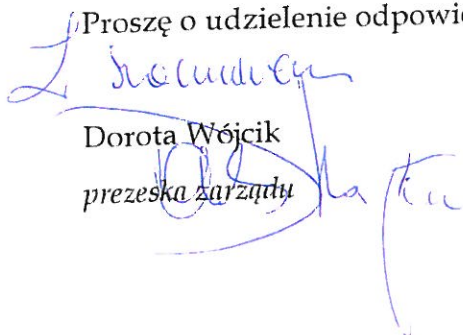 Proszę o udzielenie odpowie
Z szacunkiem
Dorota Wójcik
prezeska zarządu